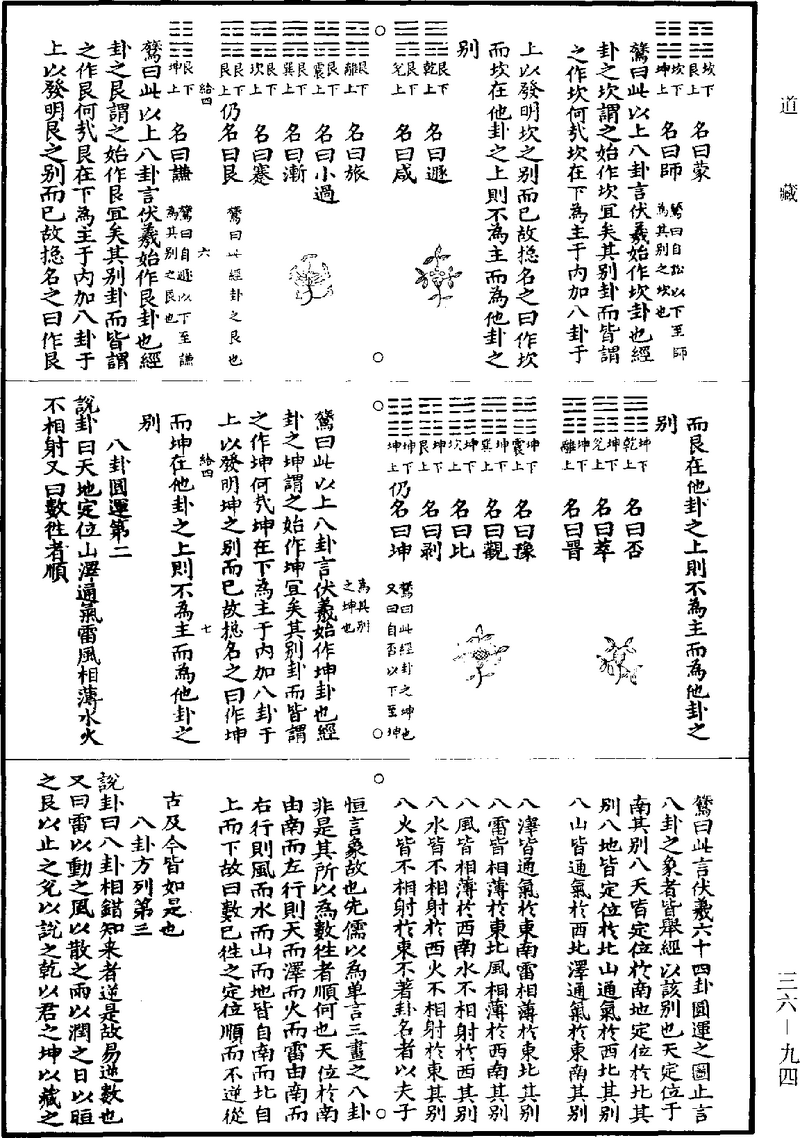 道藏
坎下艮上 名曰蒙
坎下坤上 名曰師 鶩曰自訟以下至師為其別之坎也
鶩曰此以上八卦言伏羲始作坎卦也經
卦之坎謂之始作坎宜矣其別卦而皆謂
之作坎何㢤坎在下為主于內加八卦于
上以發明坎之別而已故揔名之曰作坎
而坎在他卦之上則不為主而為他卦之
別
艮下乾上 名曰遯
艮下兌上 名曰咸
艮下離上 名曰旅
艮下震上 名曰小過
艮下巽上 名曰漸
艮下坎上 名曰蹇
艮下艮上 仍名曰艮 鶩曰此經卦之艮也
給四 六
艮下坤上 名曰謙 鶩曰自遯以下至謙為其別之艮也
鶩曰此以上八卦言伏羲始作艮卦也經
卦之艮謂之始作艮宜矣其別卦而皆謂
之作艮何㢤艮在下為主于內加八卦于
上以發明艮之別而已故揔名之曰作艮
而艮在他卦之上則不為主而為他卦之
別
坤下乾上 名曰否
坤下兌上 名曰萃
坤下離上 名曰晉
坤下震上 名曰豫
坤下巽上 名曰觀
坤下坎上 名曰比
坤下艮上 名曰剥
坤下坤上 仍名曰坤 鶩曰此經卦之坤也又曰自否以下至坤
為其別之坤也
鶩曰此以上八卦言伏羲始作坤卦也經
卦之坤謂之始作坤宜矣其別卦而皆謂
之作坤何㢤坤在下為主于內加八卦于
上以發明坤之別而已故揔名之曰作坤
給四 七
而坤在他卦之上則不為主而為他卦之
別
八卦圓運第二
說卦曰天地定位山澤通氣雷風相薄水火
不相射又曰數徃者順
鶩曰此言伏羲六十四卦圓運之圖止言
八卦之象者皆舉經以該別也天定位于
南其別八天皆定位於南地定位於北其
別八地皆定位於北山通氣於西北其別
八山皆通氣於西北澤通氣於東南其別
八澤皆通氣於東南雷相薄於東北其別
八雷皆相薄於東北風相薄於西南其別
八風皆相薄於西南水不相射於西其別
八水皆不相射於西火不相射於東其別
八火皆不相射於東不著卦名者以夫子
恒言象故也先儒以為单言三畫之八卦
非是其所以為數徃者順何也天位於南
由南而左行則天而澤而火而雷由南而
右行則風而水而山而地皆自南而北自
上而下故曰數已徃之定位順而不逆從
古及今皆如是也
八卦方列第三
說卦曰八卦相錯知来者逆是故易逆數也
又曰雷以動之風以散之雨以潤之日以晅
之艮以止之兌以說之乾以君之坤以藏之
三六－九四